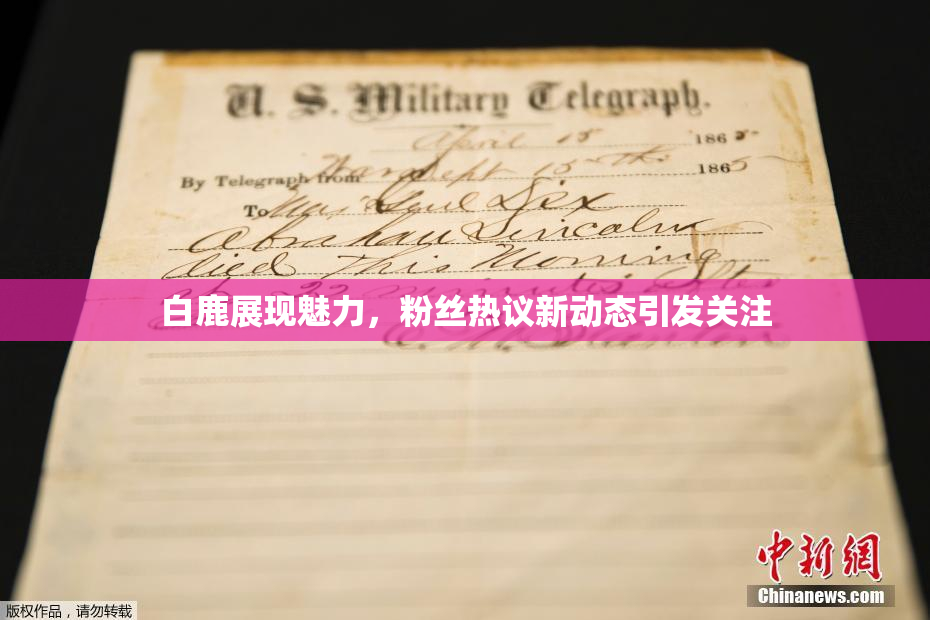 U. S. Military Telegraph.
April 15 1865
By Telegraph from War Dept 15th 1865
To Maj Genl Dix
Abraham Lincoln
died This Morning
at 22 minutes after
白鹿展现魅力，粉丝热议新动态引发关注
E. M. Stanton
中新网
Chinanews.com
版权作品，请勿转载